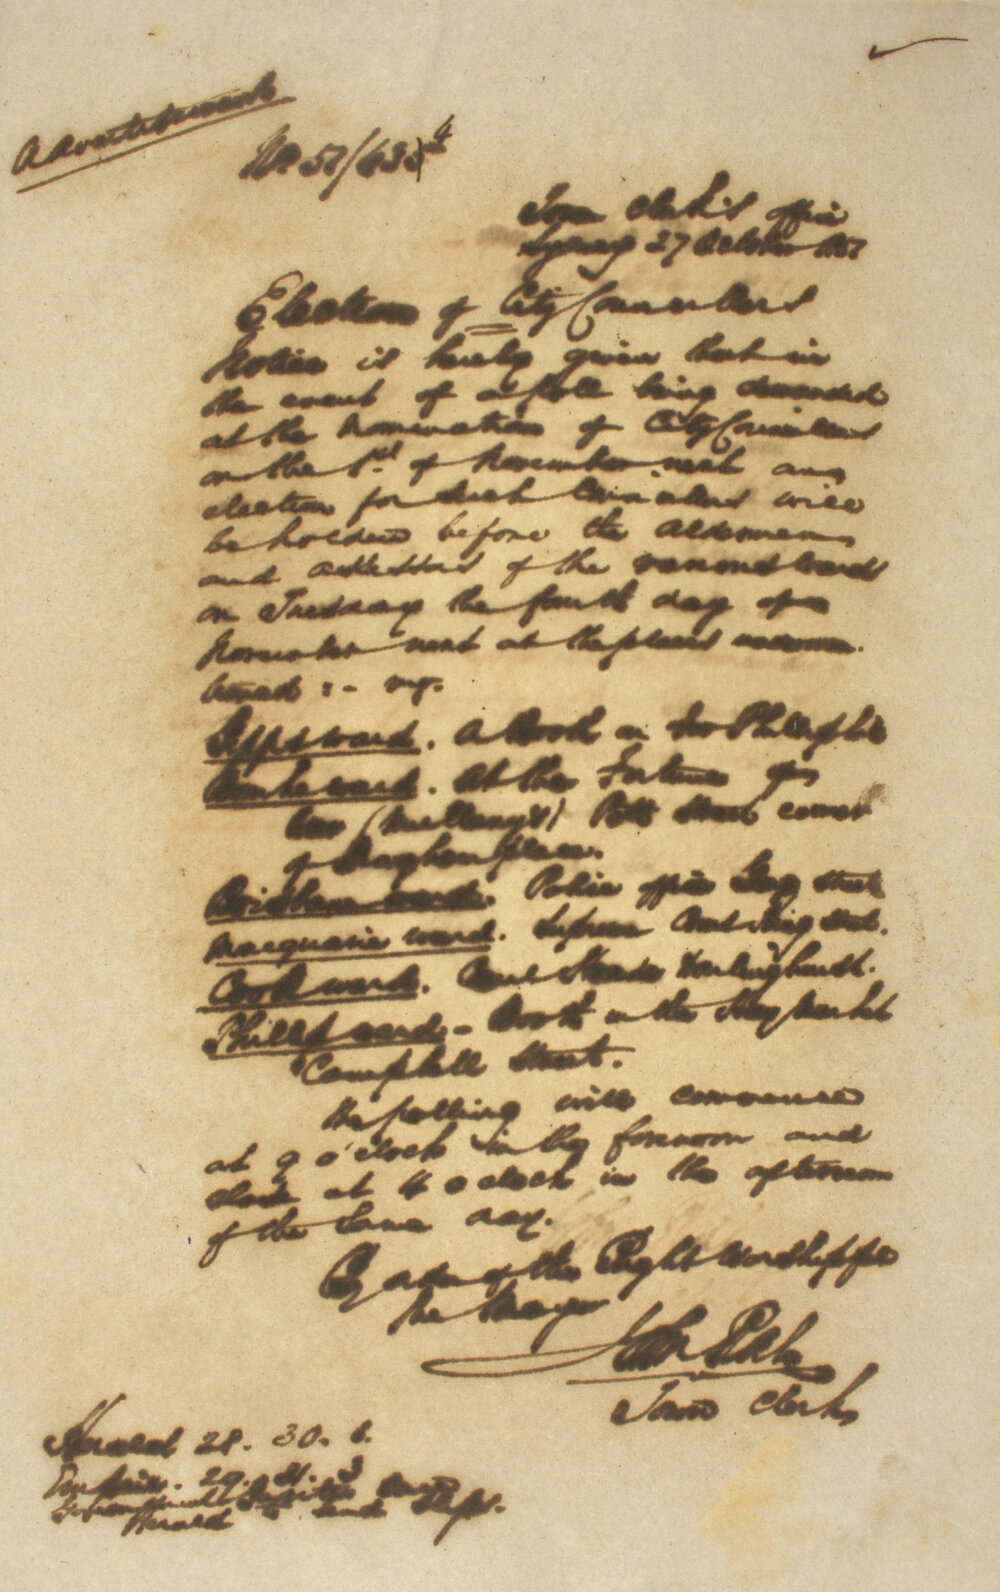 Advertisement
No 51/633 4
Town Clerk's office
Sydney 27 October 1851
Election of City Councillors
Notice is hereby given that in
the event of a poll being demanded
at the Nomination of City Councillors
on the 1st of November next an
election for such Councillors will
be holden before the Aldermen
and assessors of the various wards
on Tuesday the fourth day of
November next at the places
:- viz.
Gipps ward. A Booth in
Bourke ward. At the Fortune of
war Pitt Street corner
of place.
Brisbane ward. Police office George Street
Macquarie ward. Supreme Court King Street.
Cook ward. Darlinghurst.
Phillip ward - Booth in the Hay Market
Campbell Street.
The polling will commence
at 9 o'clock in the forenoon and
close at 4 o clock in the afternoon
of the same day.
By order of the Right Worshipful
the Mayor
John
Town Clerk
Herald 28. 30. 1.
Empire. 29. 31. 3
Herald slips.